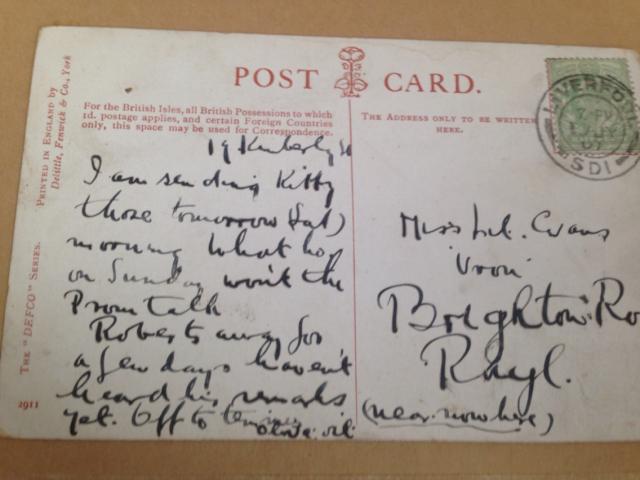 PRINTED IN ENGLAND by
Delittle, Fenwick & Co., York
THE "DEFCO" SERIES.
2911
POST CARD.
For the British Isles, all British Possessions to which
1d. postage applies, and certain Foreign Countries
only, this space may be used for Correspondence.
THE ADDRESS ONLY TO BE WRITTEN
HERE.
LIVERPO
07
SD1
19 Kimberly St
I am sending Kitty
those tomorrow (Sat)
morning What ho
on Sunday won't the
Prom talk
Roberts away for
a few days haven't
heard his remarks
yet. Off to
Miss Evans
'Vron'
Brighton Ro
Rhyl.
(near nowhere)